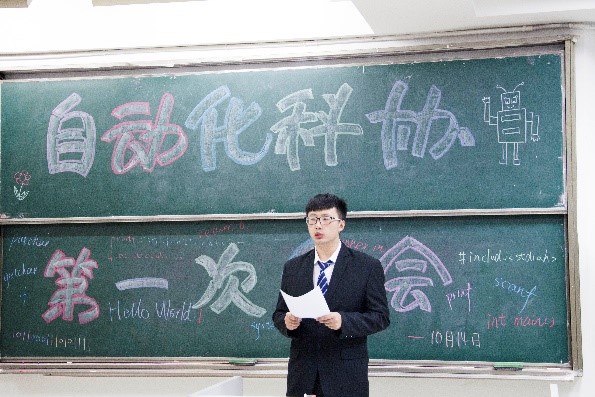 自动化科协
putchar
getchar
第一次 会
#include<stdio.h>
Hello World!
print
scanf
int main
一10月14日